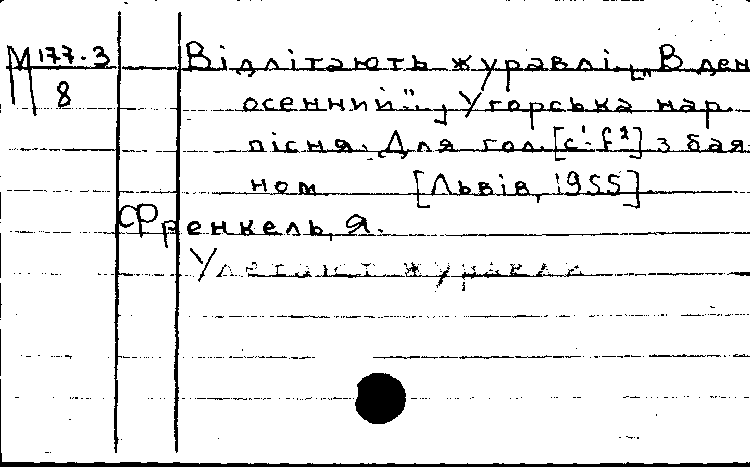 М 177.3 Відлітають журавлі. ["В ден
8 осенний".] Угорська нар.
пісня. Для гол. [c¹-f²] з бая
ном [Львів, 1955]
Френкель, Я.
Улетают журавли